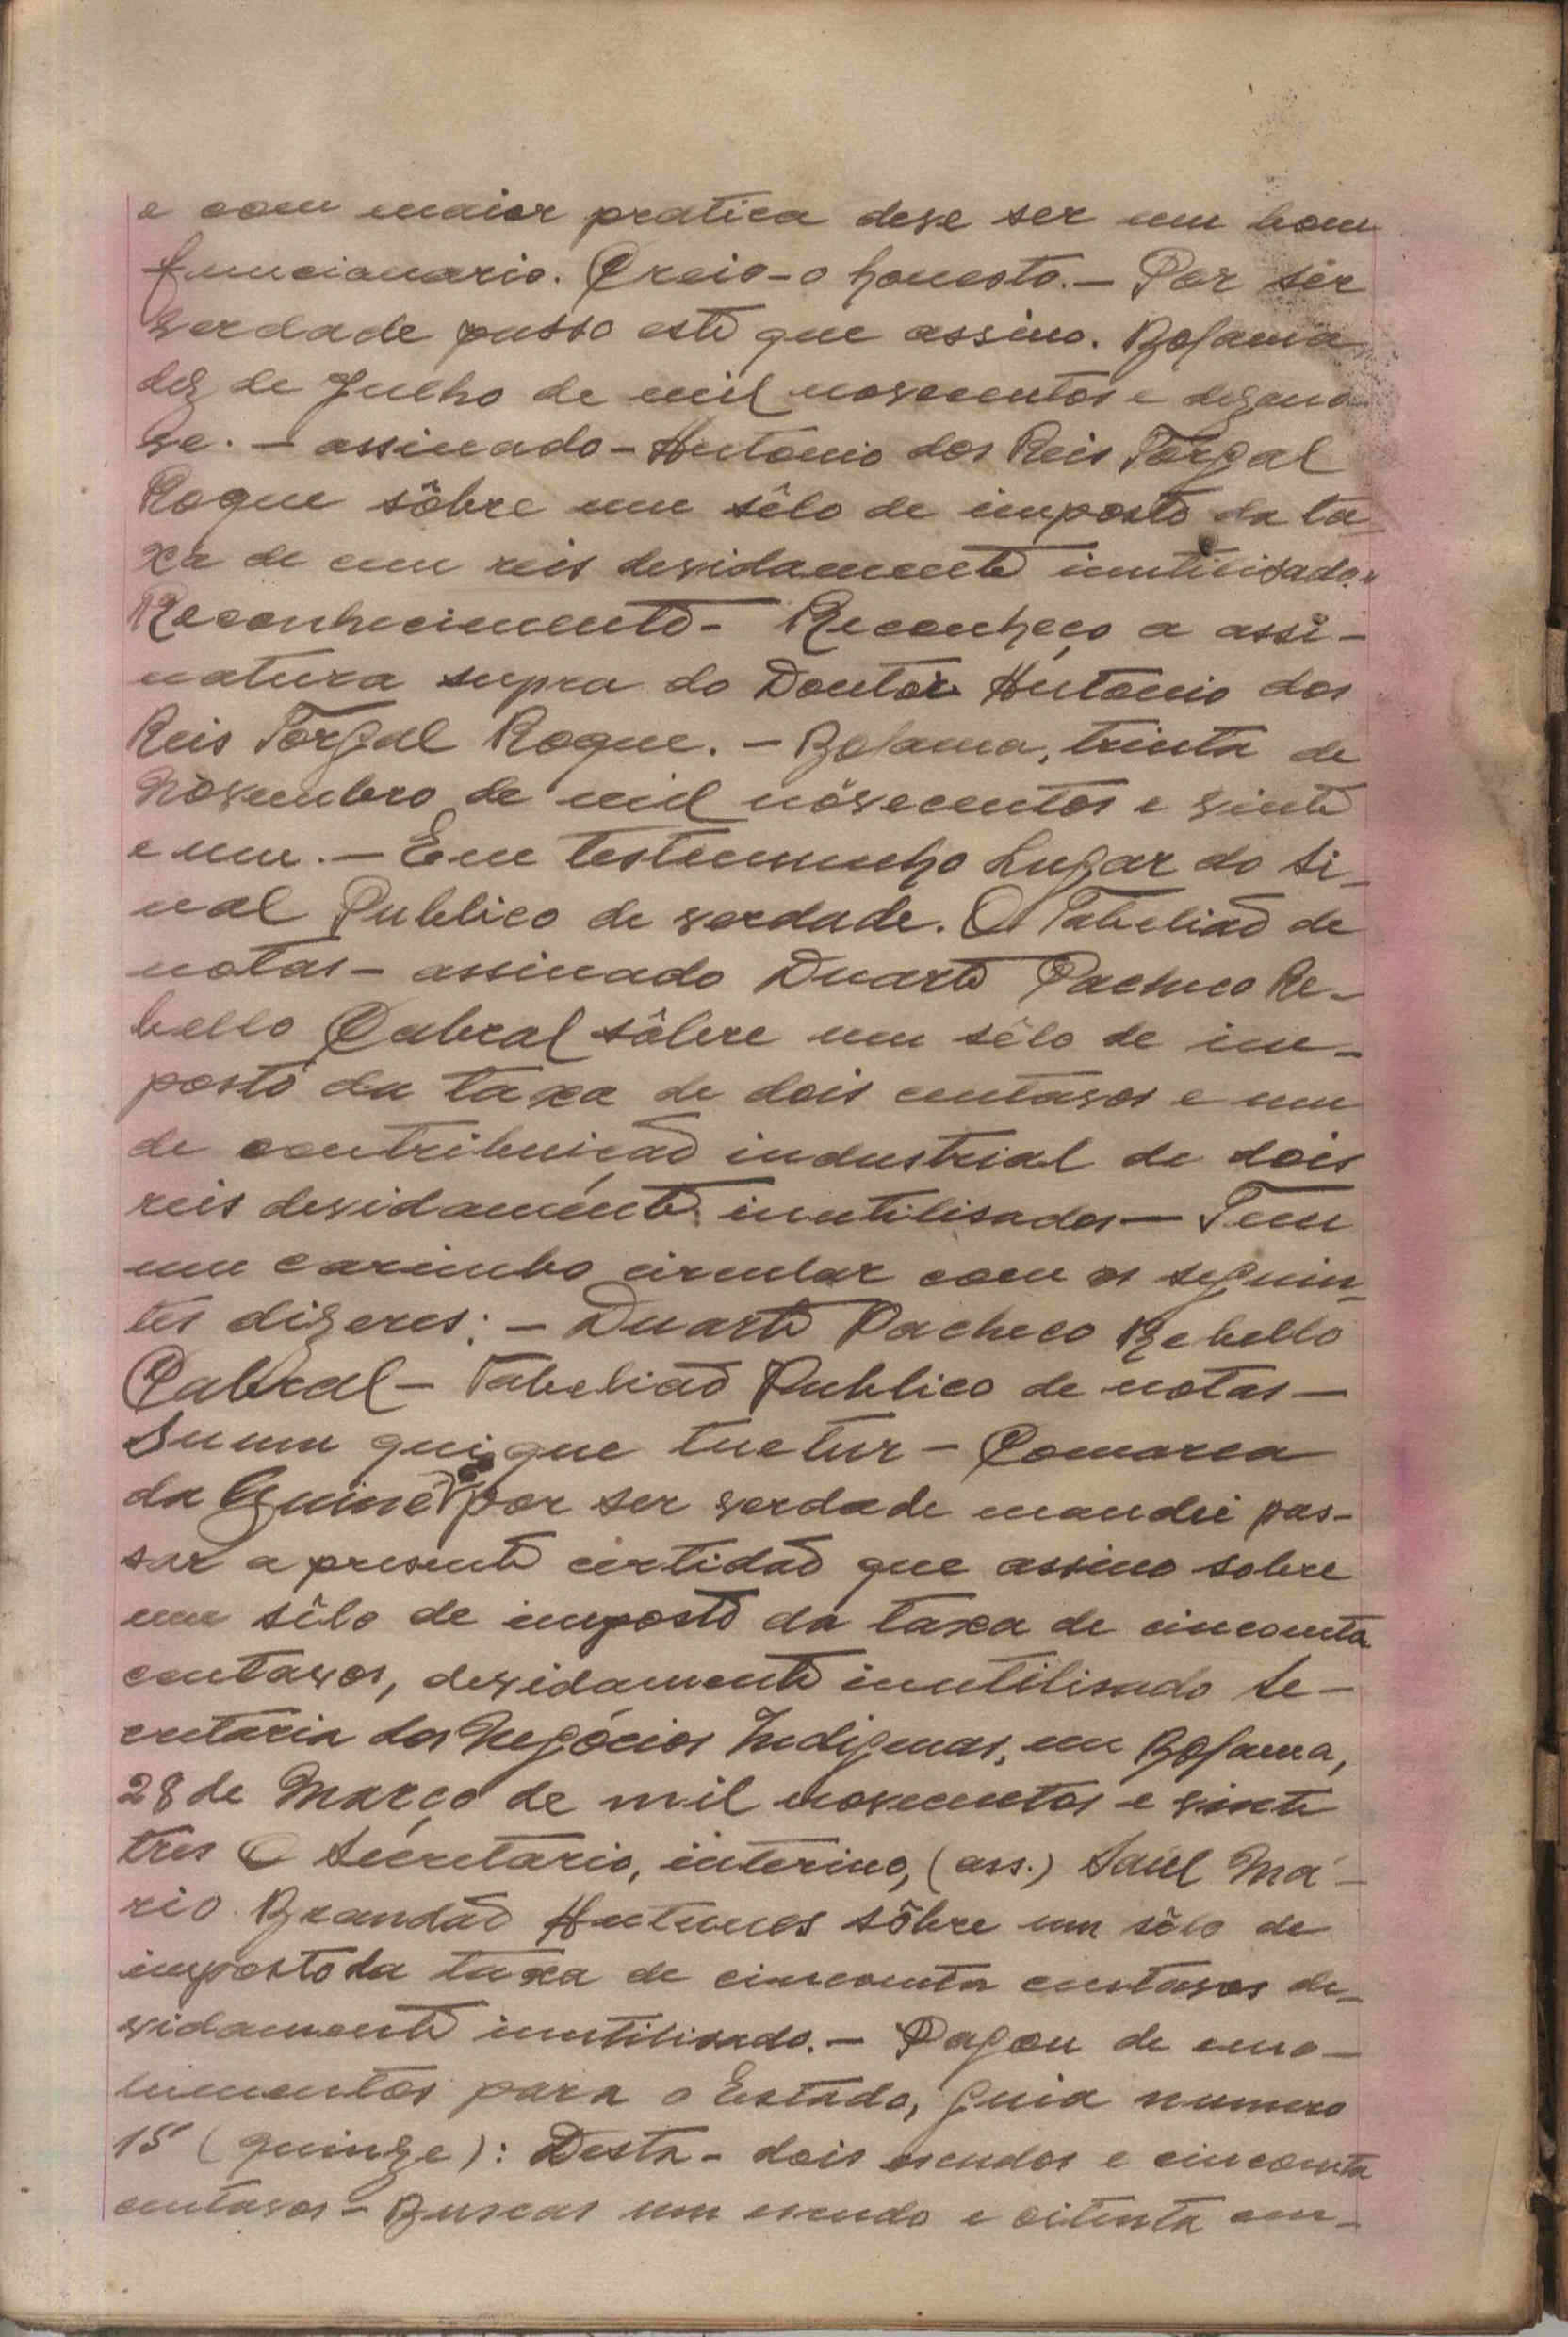 e com maior pratica deve ser um bom
funcionario. Creio-o honesto. — Por ser
verdade passo este que assino. Bolama
dez de Julho de mil novecentos e dezano-
ve. — assinado — Antonio dos Reis Torgal
Roque sôbre um sêlo de imposto da ta-
xa de cem reis devidamente inutilisado."
Reconhecimento — Reconheço a assi-
natura supra do Doutor Antonio dos
Reis Torgal Roque. — Bolama, trinta de
Novembro de mil nóvecentos e vinte
e um. — Em testemunho Lugar do Si-
nal Publico de verdade. O Tabelião de
notas — assinado Duarte Pacheco Re-
bello Cabral sôbre um sêlo de im-
posto da taxa de dois centavos e um
de contribuição industrial de dois
reis devidamente inutilisados — Tem
um carimbo circular com os seguin-
tes dizeres: — Duarte Pacheco Rebello
Cabral — Tabelião Publico de notas —
Suum quique tuetur — Comarca
da Guiné por ser verdade mandei pas-
sar a presente certidão que assino sobre
um sêlo de imposto da taxa de cincoenta
centavos, devidamente inutilisado Se-
cretaria dos Negócios Indigenas, em Bolama,
28 de Março de mil novecentos e vinte
tres O Secretario, interino, (ass.) Saul Má-
rio Brandão Antunes sôbre um sêlo de
imposto da taxa de cincoenta centavos de-
vidamente inutilisado. — Pagou de emo-
lumentos para o Estado, guia numero
15 (quinze): Desta — dois escudos e cincoenta
centavos — Buscas um escudo e oitenta cen-